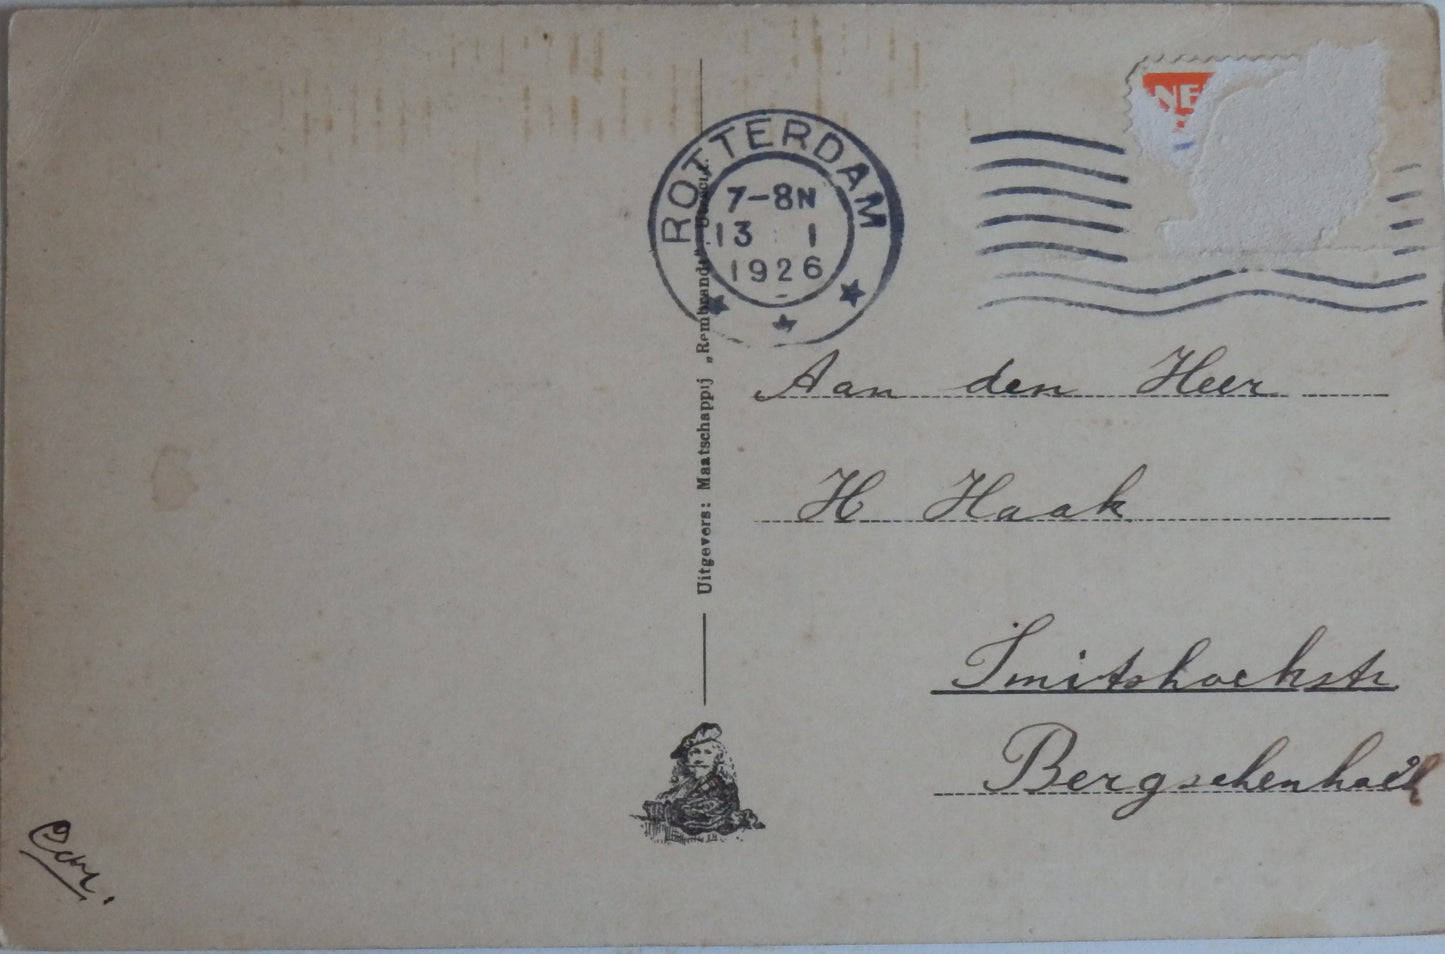 NE
ROTTERDAM
7-8N
13 1
1926
Uitgevers: Maatschappij „Rembrandt" Utrecht.
Aan den Heer
H Haak
Smitshoekstr
Bergschenhoek